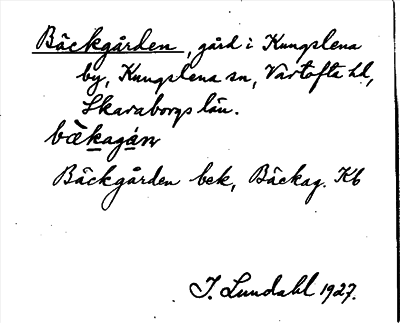 Bäckgården, gård i Kungslena
by, Kungslena sn, Vartofta hd,
Skaraborgs län.
Bäckgården bek, Bäckag. Kb
I. Lundahl 1927.